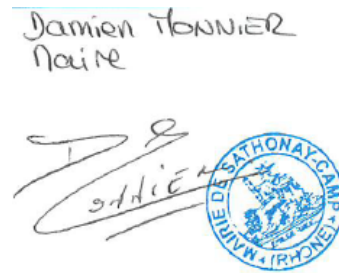 Damien MONNIER
Maire
MAIRIE DE SATHONAY-CAMP
(RHONE)